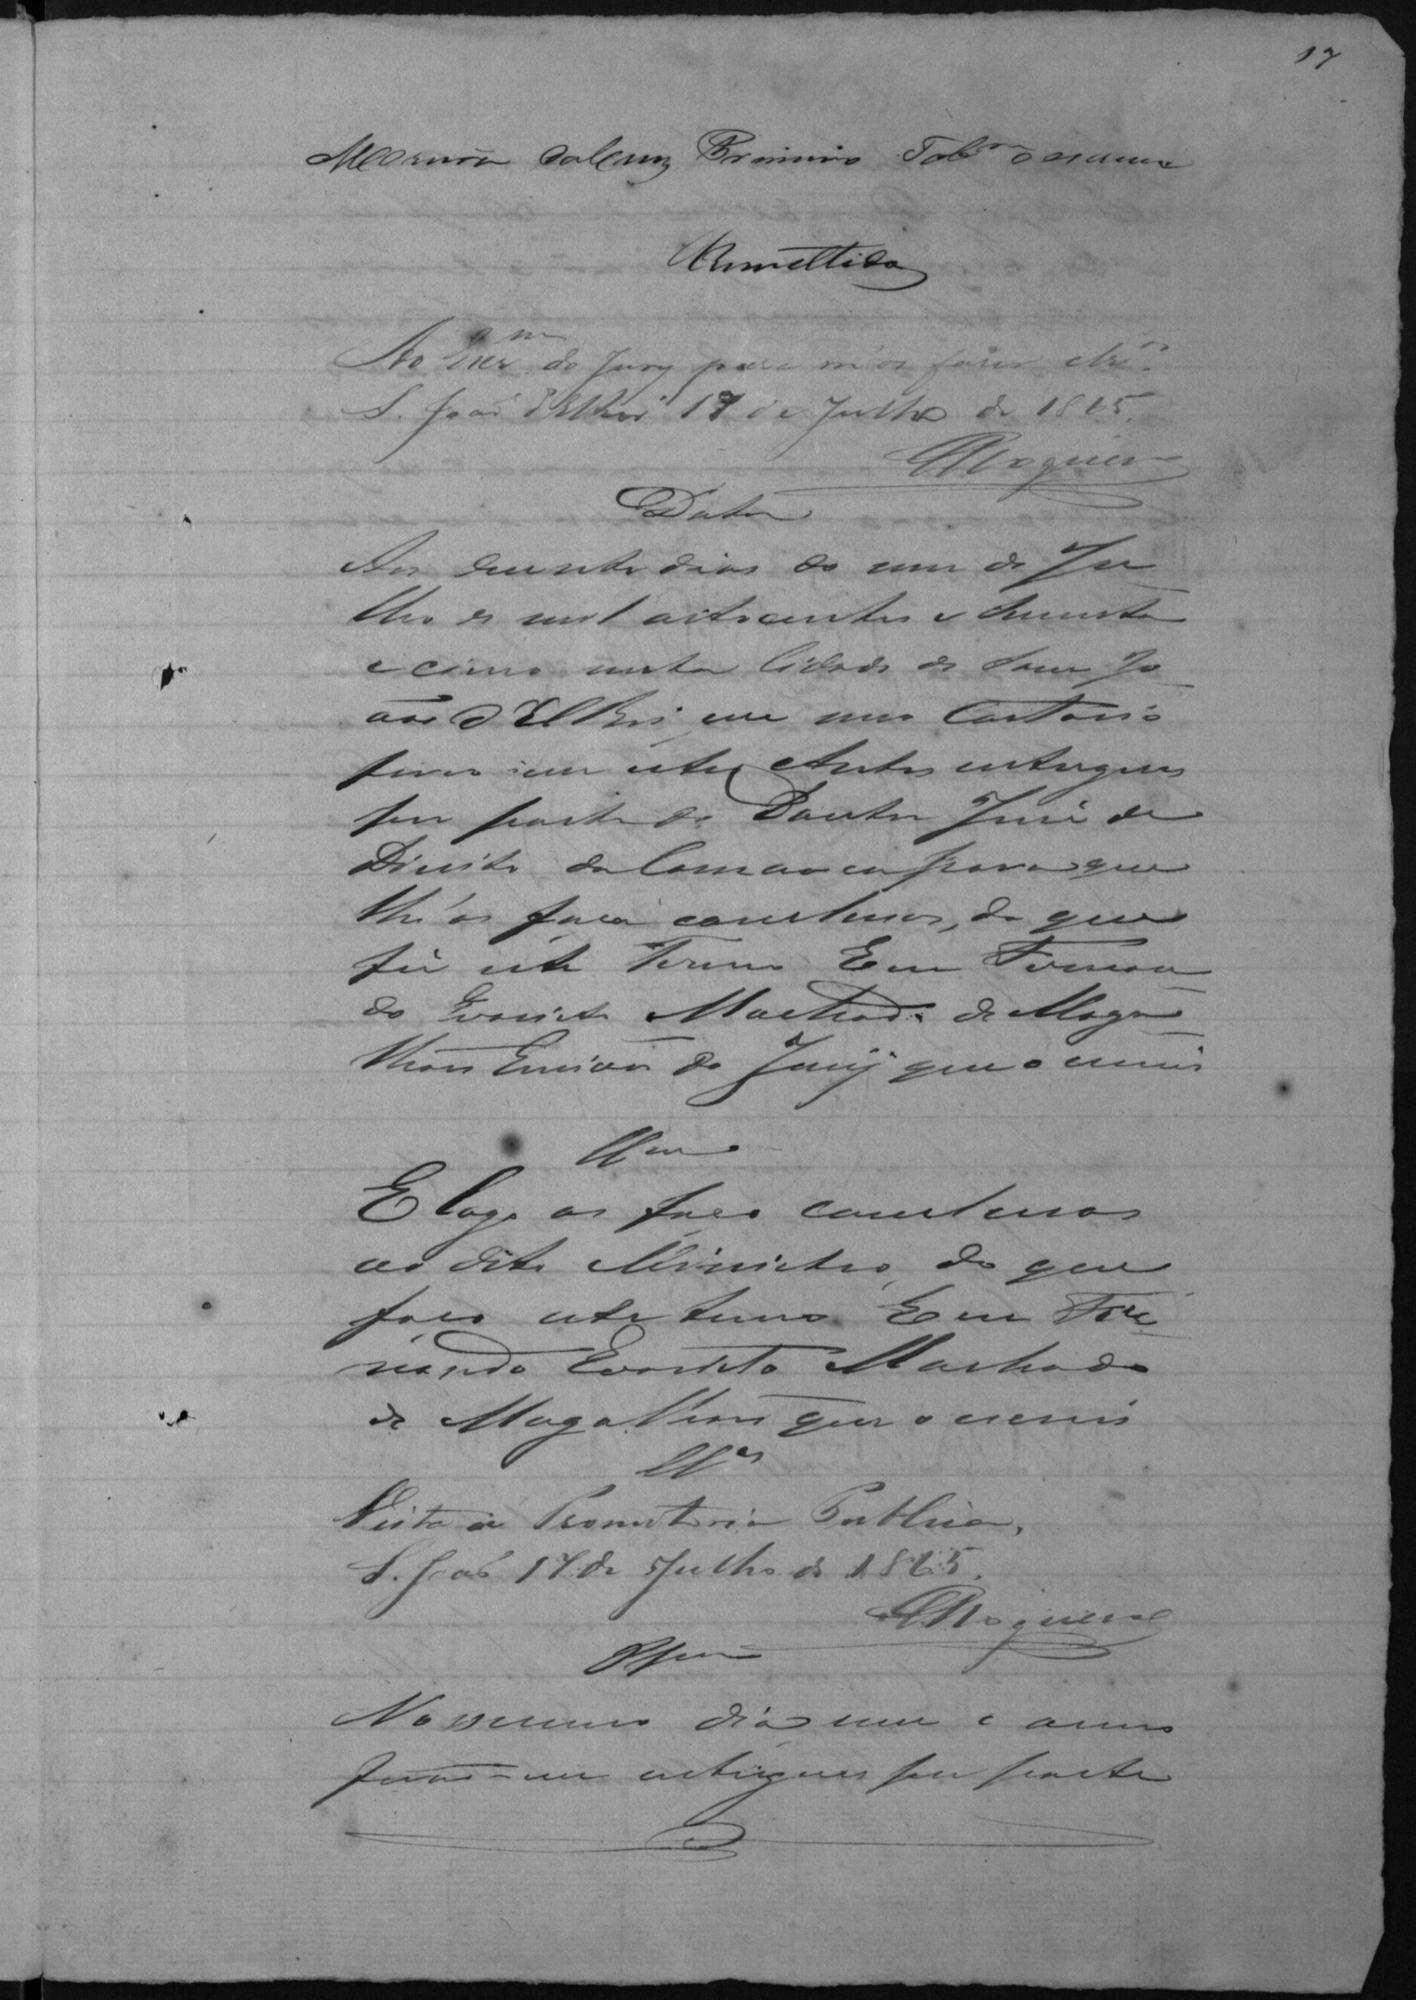 17
Primeiro Tab.am o escrevi
Remettido
Ao Escr.am do Jury para m'os fazer cls.os
S. João d'ElRei 17 de Julho de 1865.
Nogueira
Data
Aos dias do mes de Ju
lho de mil oitocentos e sessenta
e cinco nesta Cidade de Sam Jo
ão d'ElRei, em meu Cartorio
forão-me estes Autos entregues
por parte do Doutor Juis de
Direito da Comarca para que
lhe os faça conclusos, do que
fis este Termo Eu Fernan
do Evaristo Machado de Maga
lhães Escrivão do Jury que o escrevi
E logo os faço conclusos
ao dito Ministro, do que
faço este termo. Eu Fer
nando Evaristo Machado
de Magalhães que o escrevi
Cls.os
Vista á Promotoria Publica,
S. João 17 de Julho de 1865.
Nogueira
No mesmo dia, mes e anno
forão-me entregues por parte